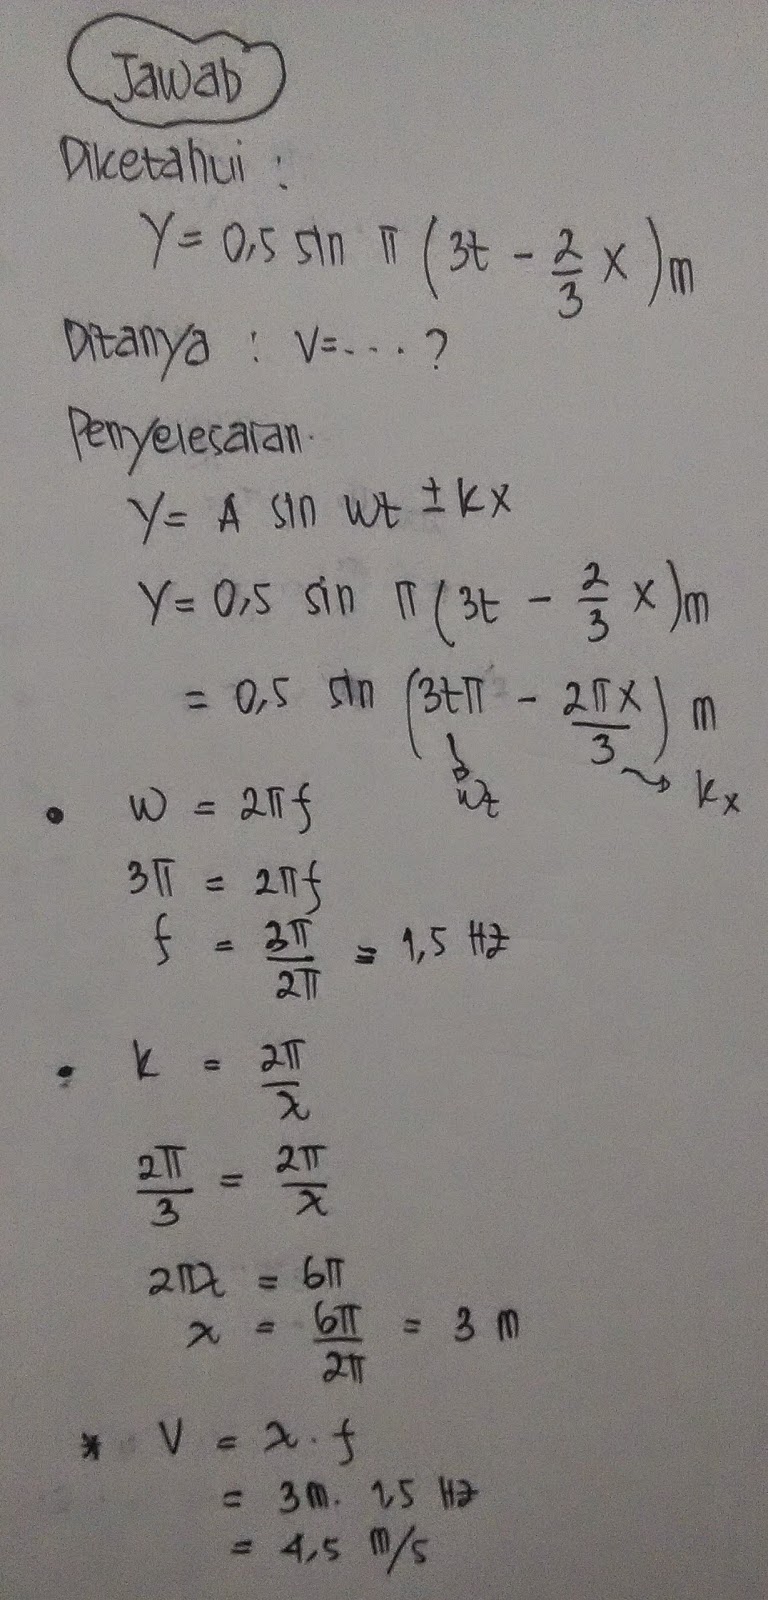 Jawab
Diketahui :
Y = 0,5 sin π (3t - 2/3 x) m
Ditanya : V = ... ?
Penyelesaian.
Y = A sin wt ± kx
Y = 0,5 sin π (3t - 2/3 x) m
= 0,5 sin (3tπ - 2πx/3) m
wt
kx
• w = 2πf
3π = 2πf
f = 3π/2π = 1,5 Hz
• k = 2π/λ
2π/3 = 2π/λ
2πλ = 6π
λ = 6π/2π = 3 m
* V = λ . f
= 3m. 1,5 Hz
= 4,5 m/s